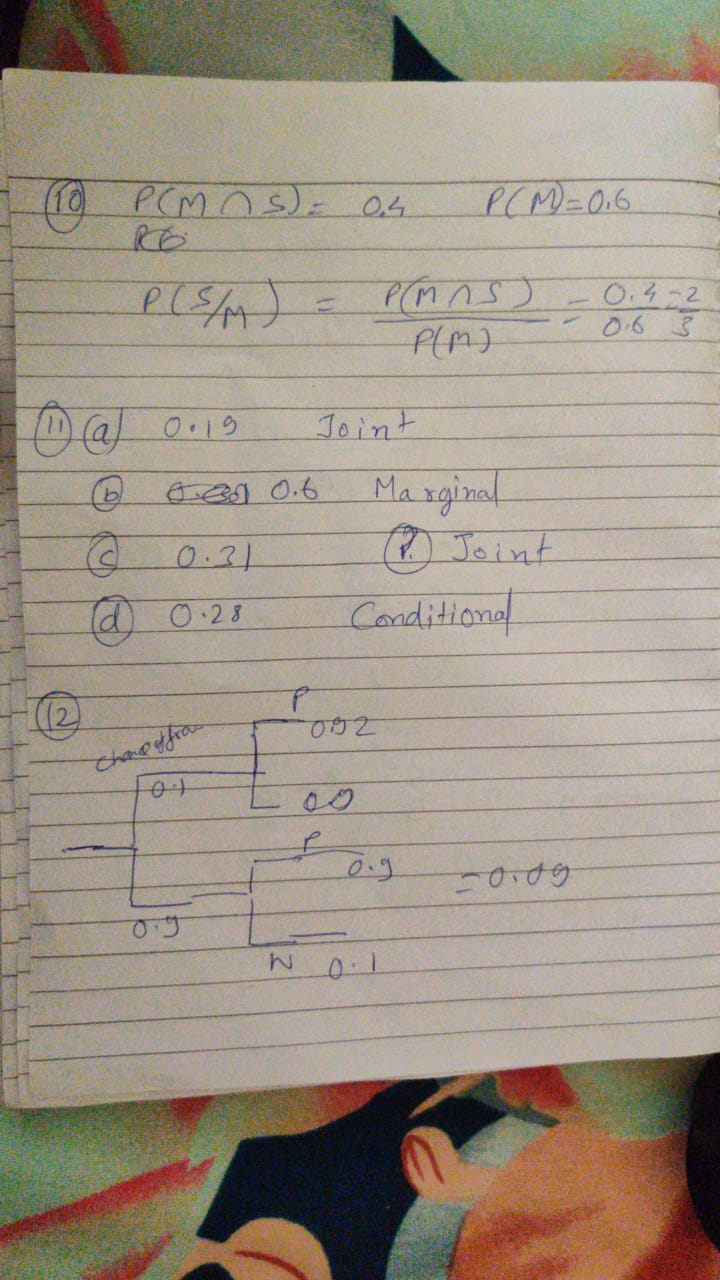 10 P(M∩S)= 0.4 P(M)=0.6
P(S/M) = P(M∩S) / P(M) = 0.4 / 0.6 = 2 / 3
11 a 0.19 Joint
b 0.6 Marginal
c 0.31 Joint
d 0.28 Conditional
12
P
0.92
0.1
P
0.9 =0.09
0.9
N 0.1